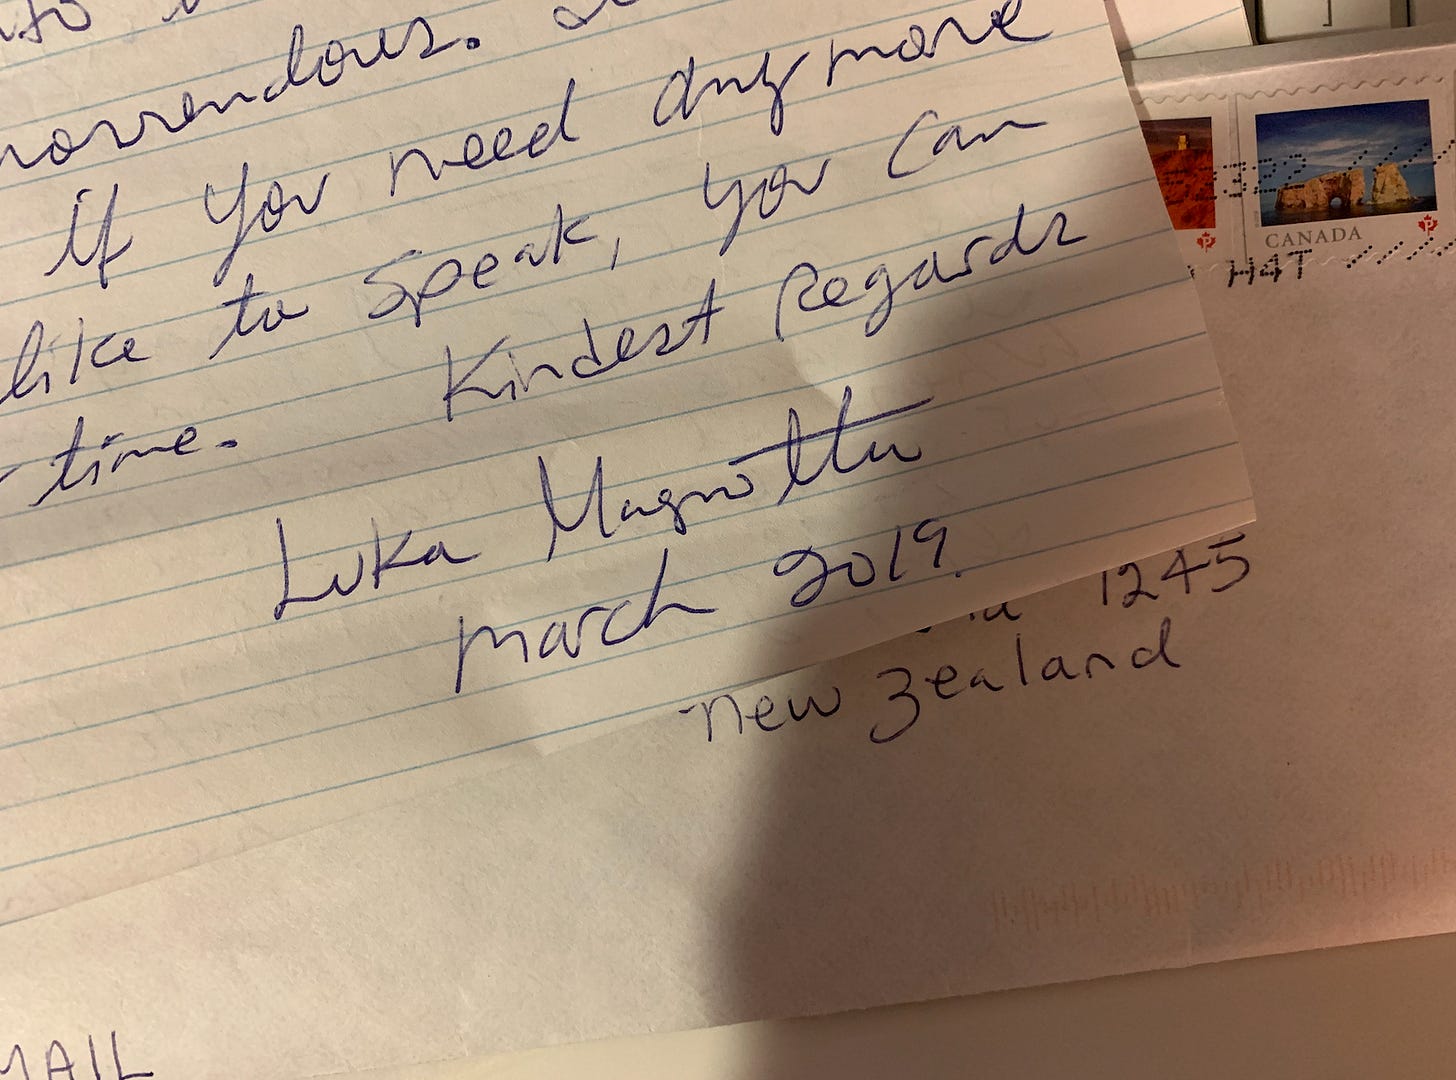 horrendous.
if you need any more
like to speak, you can
time. Kindest Regards
Luka Magnotta
march 2019.
1245
new Zealand
CANADA
H4T
MAIL